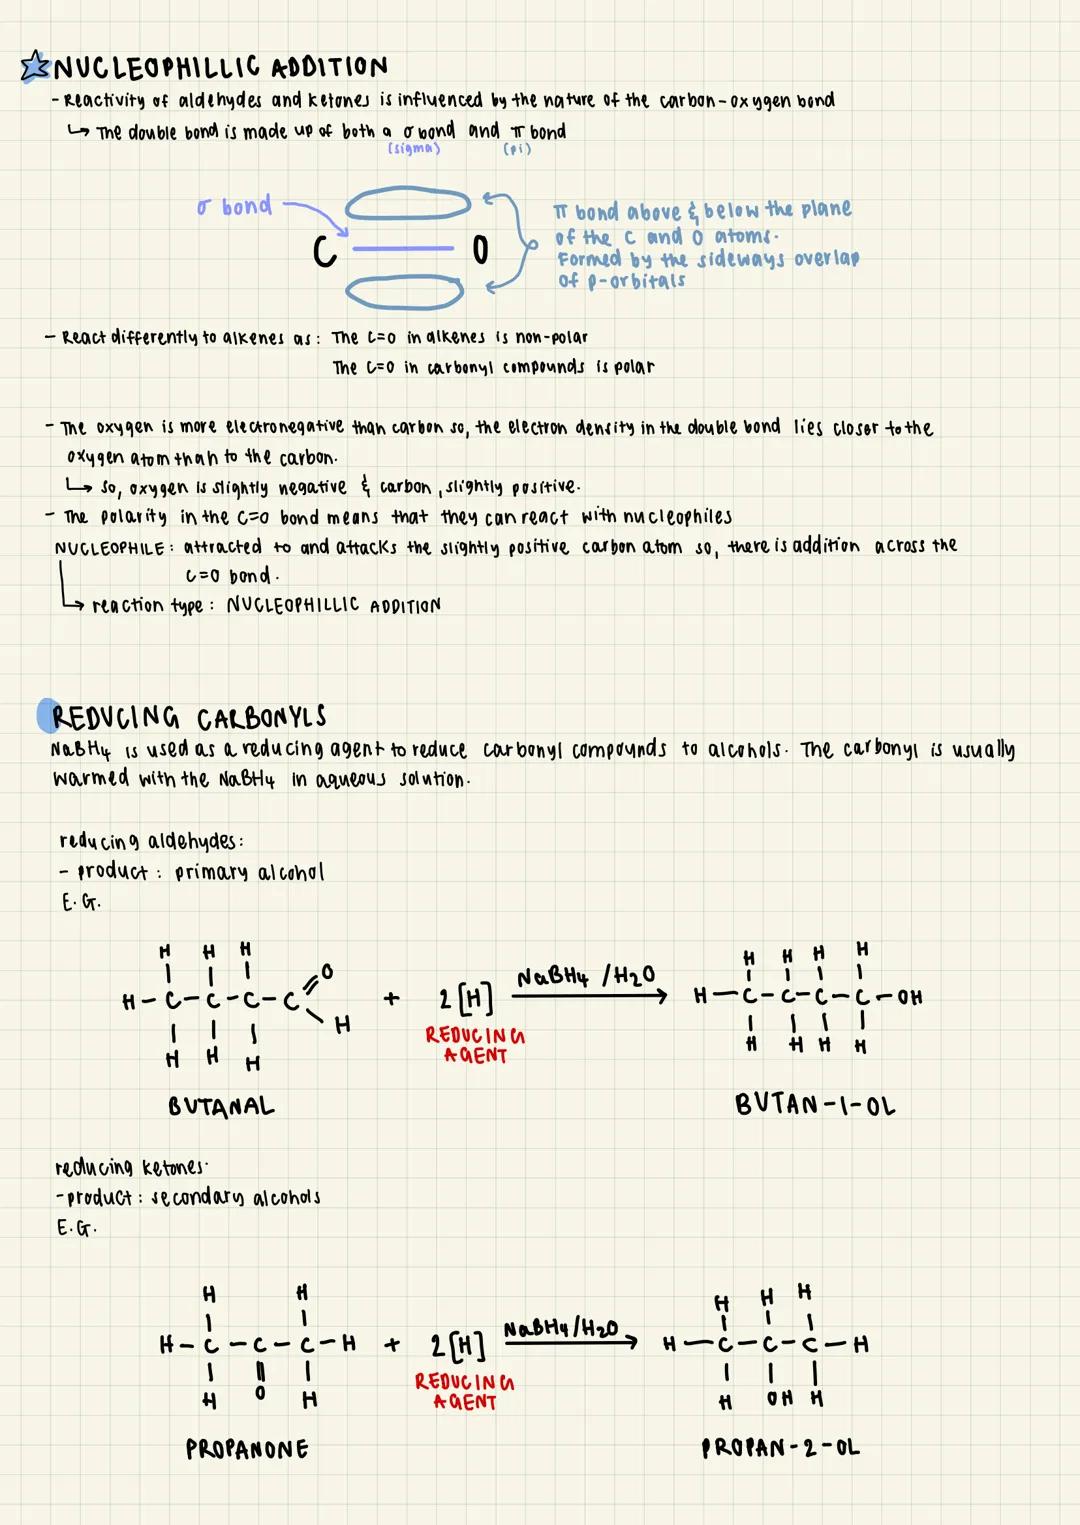 NUCLEOPHILLIC ADDITION
- Reactivity of aldehydes and ketones is influenced by the nature of the carbon-oxygen bond
↳ The double bond is made up of both a σ bond and π bond
(sigma) (pi)
σ bond
C O
π bond above & below the plane
of the C and O atoms.
Formed by the sideways overlap
of p-orbitals
- React differently to alkenes as: The C=O in alkenes is non-polar
The C=O in carbonyl compounds is polar
- The oxygen is more electronegative than carbon so, the electron density in the double bond lies closer to the
oxygen atom than to the carbon.
↳ so, oxygen is slightly negative & carbon, slightly positive.
- The polarity in the C=O bond means that they can react with nucleophiles
NUCLEOPHILE: attracted to and attacks the slightly positive carbon atom so, there is addition across the
C=O bond.
↳ reaction type: NUCLEOPHILLIC ADDITION
REDUCING CARBONYLS
NaBH4 is used as a reducing agent to reduce carbonyl compounds to alcohols. The carbonyl is usually
warmed with the NaBH4 in aqueous solution.
reducing aldehydes:
- product: primary alcohol
E.G.
H H H
O
H-C-C-C-C
H
H H H
+ 2[H]
REDUCING
AGENT
NaBH4 /H2O
H H H H
H-C-C-C-C-OH
H H H H
BUTANAL
BUTAN-1-OL
reducing ketones.
- product: secondary alcohols
E.G.
H H
H-C-C-C-H
H O H
+ 2[H]
REDUCING
AGENT
NaBH4/H2O
H H H
H-C-C-C-H
H OH H
PROPANONE
PROPAN-2-OL